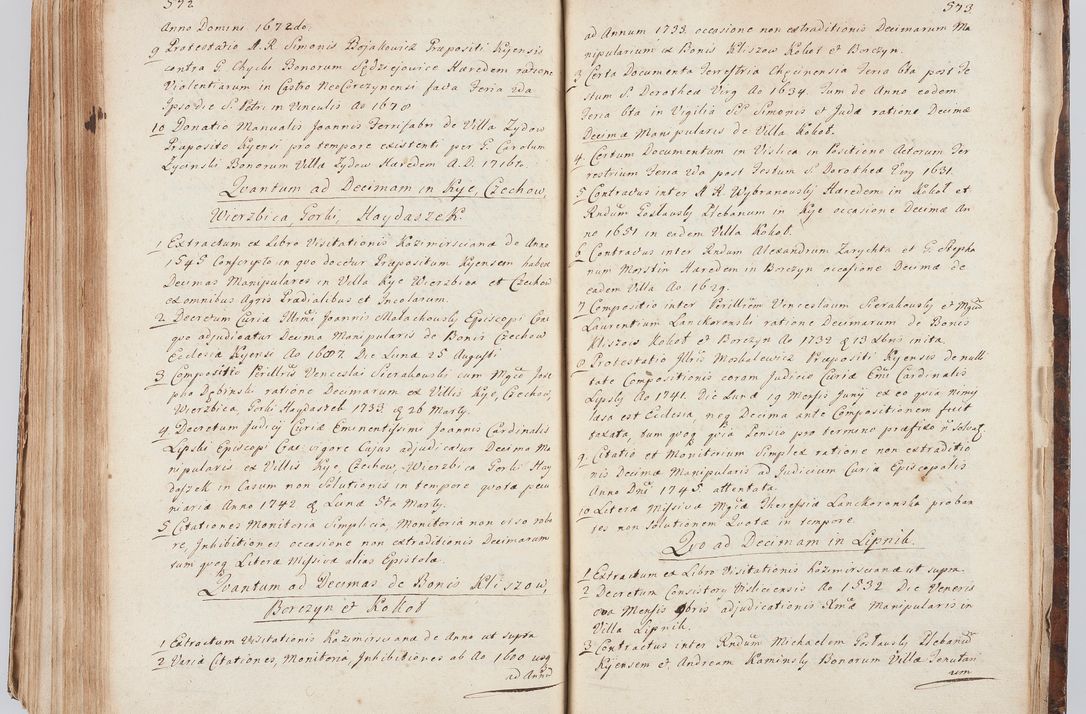 572
Anno Domini 1672do.
9 Protestatio A. R. Simonis Bojakowicz Præpositi Kyensis
contra G. Chycki Bonorum Sędziejowice Hæredem ratione
Violentiarum in Castro NeoCorczynensi facta Feria 2da
Ipso die S. Petri in Vinculis Ao 1678
10 Donatio Manualis Joannis Ferrifabri de Villa Zydow
Præposito Kyensi pro tempore existenti per G. Carolum
Zysinski Bonorum Villæ Zydow Hæredem A.D. 1716to.
Qvantum ad Decimam in Kye, Czechow,
Wierzbica Gorki, Haydaszek.
1 Extractum ex Libro Visitationis Kazimirscianæ de Anno
1545 Conscripto in quo docetur Præpositum Kyensem habere
Decimas Manipulares in Villa Kye Wierzbica et Czechow
ex omnibus Agris Prædialibus et Incolarum.
2 Decretum Curiæ Illmi Joannis Małachowsky Episcopi Crac
quo adjudicatur Decima Manipularis de Bonis Czechow
Ecclesiæ Kyensi Ao 1687. Die Lunæ 25 Augusti
3 Compositio Perillris Venceslai Sierakowski cum Mgco Jose
pho Dębinski ratione Decimarum ex Villis Kye, Czechow,
Wierzbica, Gorki Haydaszek 1733. d. 26 Marty.
4 Decretum Judicij Curiæ Eminentissimi Joannis Cardinalis
Lipski Episcopi Crac vigore Cujus adjudicatur Decima Ma
nipularis ex Villis Kye, Czechow, Wierzbica Gorki Hay
daszek in Casum non Solutionis in tempore quotæ pecu
niariæ Anno 1742 d. Lunæ 5ta Marty.
5 Citationes Monitoria Simplicia, Monitoria non etso robo
re, Inhibitiones occasione non extraditionis Decimarum
tum quoq Literæ Missivæ alias Epistolæ.
Qvantum ad Decimas de Bonis Kliszow,
Borczyn et Kokot
1 Extractum Visitationis Kazimirscianæ de Anno ut supra
2 Variæ Citationes, Monitoria, Inhibitiones ab Ao 1600 usq
ad Annū
573
ad Annum 1733. occasione non extraditionis Decimarum Ma
nipularium ex Bonis Kliszow Kokot et Borczyn.
3 Certa Documenta Terrestria Chęcinensia Feria 6ta post Fe
stum S. Dorotheæ Virg Ao 1634. Tum de Anno eodem
Feria 6ta in Vigilia SS. Simonis et Judæ ratione Decimæ
Decimæ Manipularis de Villa Kokot.
4. Certum Documentum in Vislica in Positione Actorum Ter
restrium Feria 2da post Festum S. Dorotheæ Virg 1631.
5 Contractus inter A. R. Wybranowsky Hæredem in Kokot et
Rndum Gosławsky Plebanum in Kye occasione Decimæ An
no 1651 in eadem Villa Kokot.
6 Contractus inter Rndum Alexandrum Zarychta et G. Stepha
num Morstin Hæredem in Borczyn occasione Decimæ de
eadem Villa Ao 1629.
7 Compositio inter Perillrem Venceslaum Sierakowsky et Mgcū
Laurentium Lanckoronski ratione Decimarum de Bonis
Kliszow Kokot et Borczyn Ao 1732 d. 13 Xbris inita.
8 Protestatio Illris Moskalewicz Præpositi Kyensis de nulli
tate Compositionis coram Judicio Curiæ Emi Cardinalis
Lipsky Ao 1741. Die Lunæ 19 Mensis Junij ex eo quia nimis
læsa est Ecclesia, neq Decima ante Compositionem fuit
taxata, tum quoq quia Pensio pro termino præfixo n̄ solvat
9 Citatio et Monitorium Simplex ratione non extraditio
nis Decimæ Manipularis ad Judicium Curiæ Episcopalis
Anno Dni 1745 attentata.
10 Literæ Missivæ Mgcæ Theressiæ Lanckoronska proban
tes non Solutionem Quotæ in tempore.
Qvo ad Decimam in Lipnik.
1 Extractum ex Libro Visitationis Kazimirscianæ ut supra.
2 Decretum Consistory Vislicensis Ao 1532. Die Veneris
8va Mensis 9bris adjudicationis Xmæ Manipularis in
Villa Lipnik.
3 Contractus inter Rndum Michaelem Gosławsky Plebanū
Kyensem et Andream Kaminsky Bonorum Villæ Tenutari
um